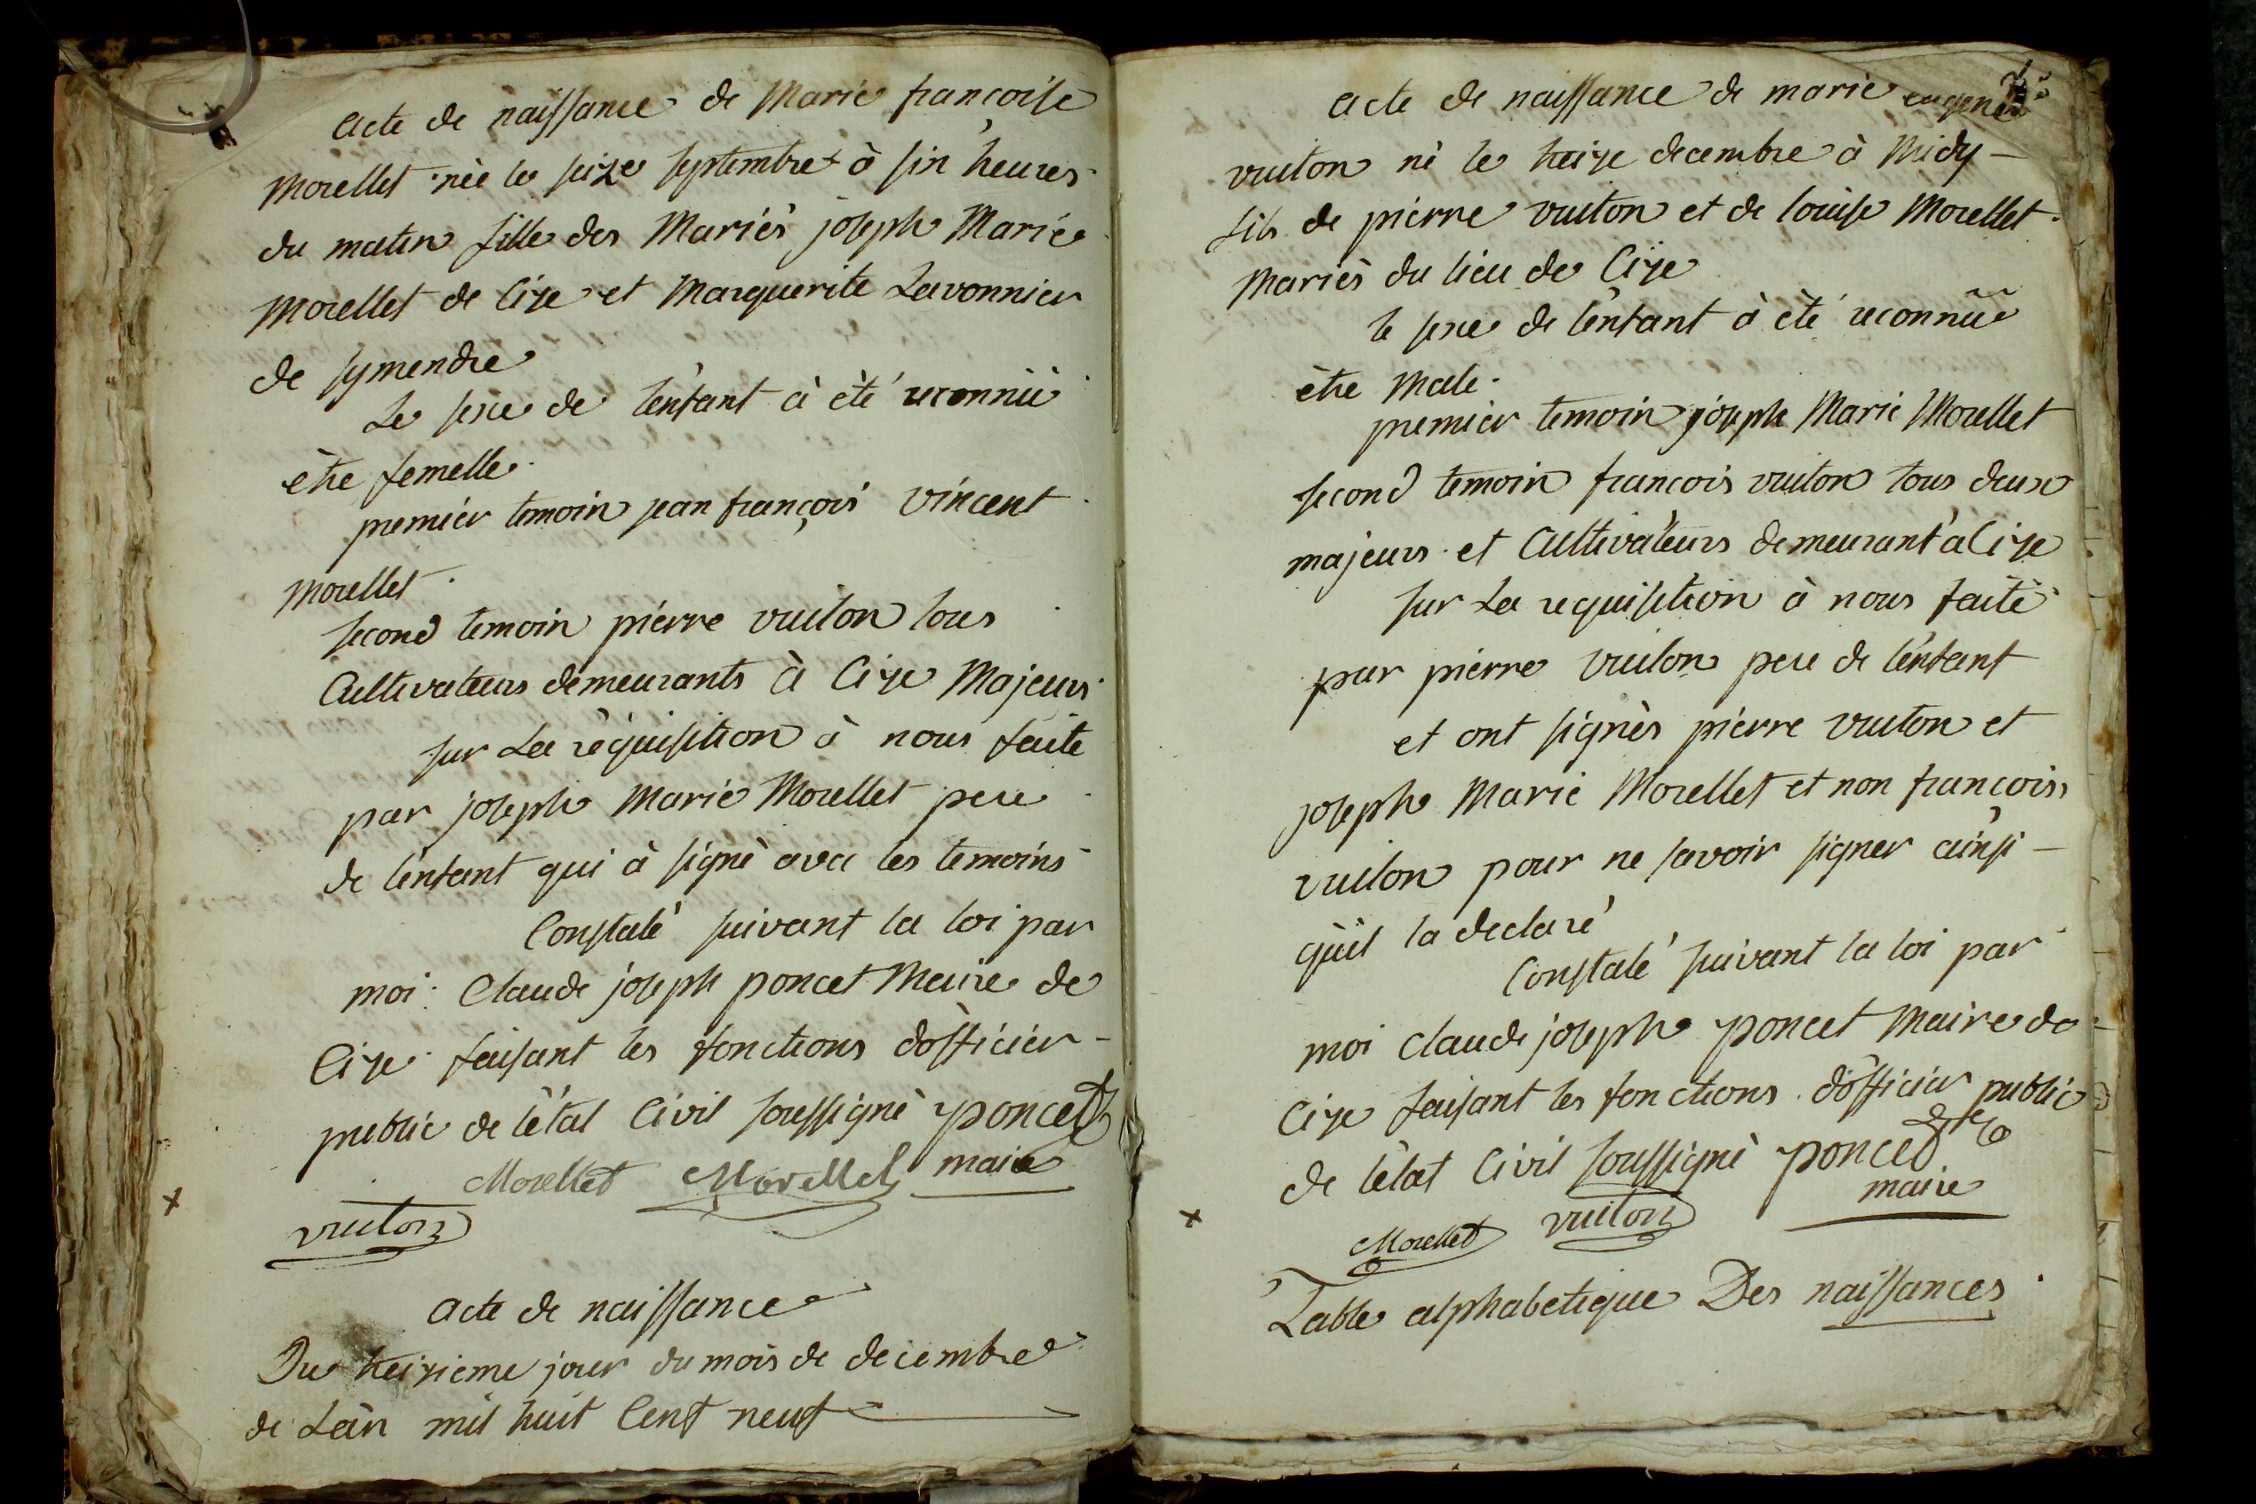 acte de naissance de Marie françoise
Morellet née le seize septembre à six heures
du matin fille des Mariés joseph Marie
Morellet de Cize et Marguerite Lavonnier
de symendre
Le sexe de l'enfant à été reconnü
être femelle
premier temoin jean françois vincent
Morellet
second temoin pierre vuiton tous
Cultivateurs demeurants à Cize Majeurs
sur La réquisition à nous faite
par joseph Marie Morellet pere
de l'enfant qui à signé avec les temoins
Constaté suivant la loi par
moi Claude joseph poncet Maire de
Cize faisant les fonctions d'officier
public de l'état Civil soussigné poncet
Morellet Morellet maire
vuiton
acte de naissance
Du treizieme jour du mois de decembre
de L'an mil huit Cent neuf
acte de naissance de marie eugene
vuiton né le treize decembre à Midy
fils de pierre vuiton et de louise Morellet
Mariés du lieu de Cize
le sexe de l'enfant à été reconnu
être Male
premier temoin joseph Marie Morellet
second temoin francois vuiton tous deux
majeurs et Cultivateurs demeurant à Cize
sur La requisition à nous faite
par pierre vuiton pere de l'enfant
et ont signés pierre vuiton et
joseph Marie Morellet et non françois
vuiton pour ne savoir signer ainsi
qu'il la declaré
Constaté suivant la loi par
moi Claude joseph poncet Maire de
Cize faisant les fonctions d'officier public
de l'état Civil soussigné poncet
maire
Morellet vuiton
Table alphabetique Des naissances